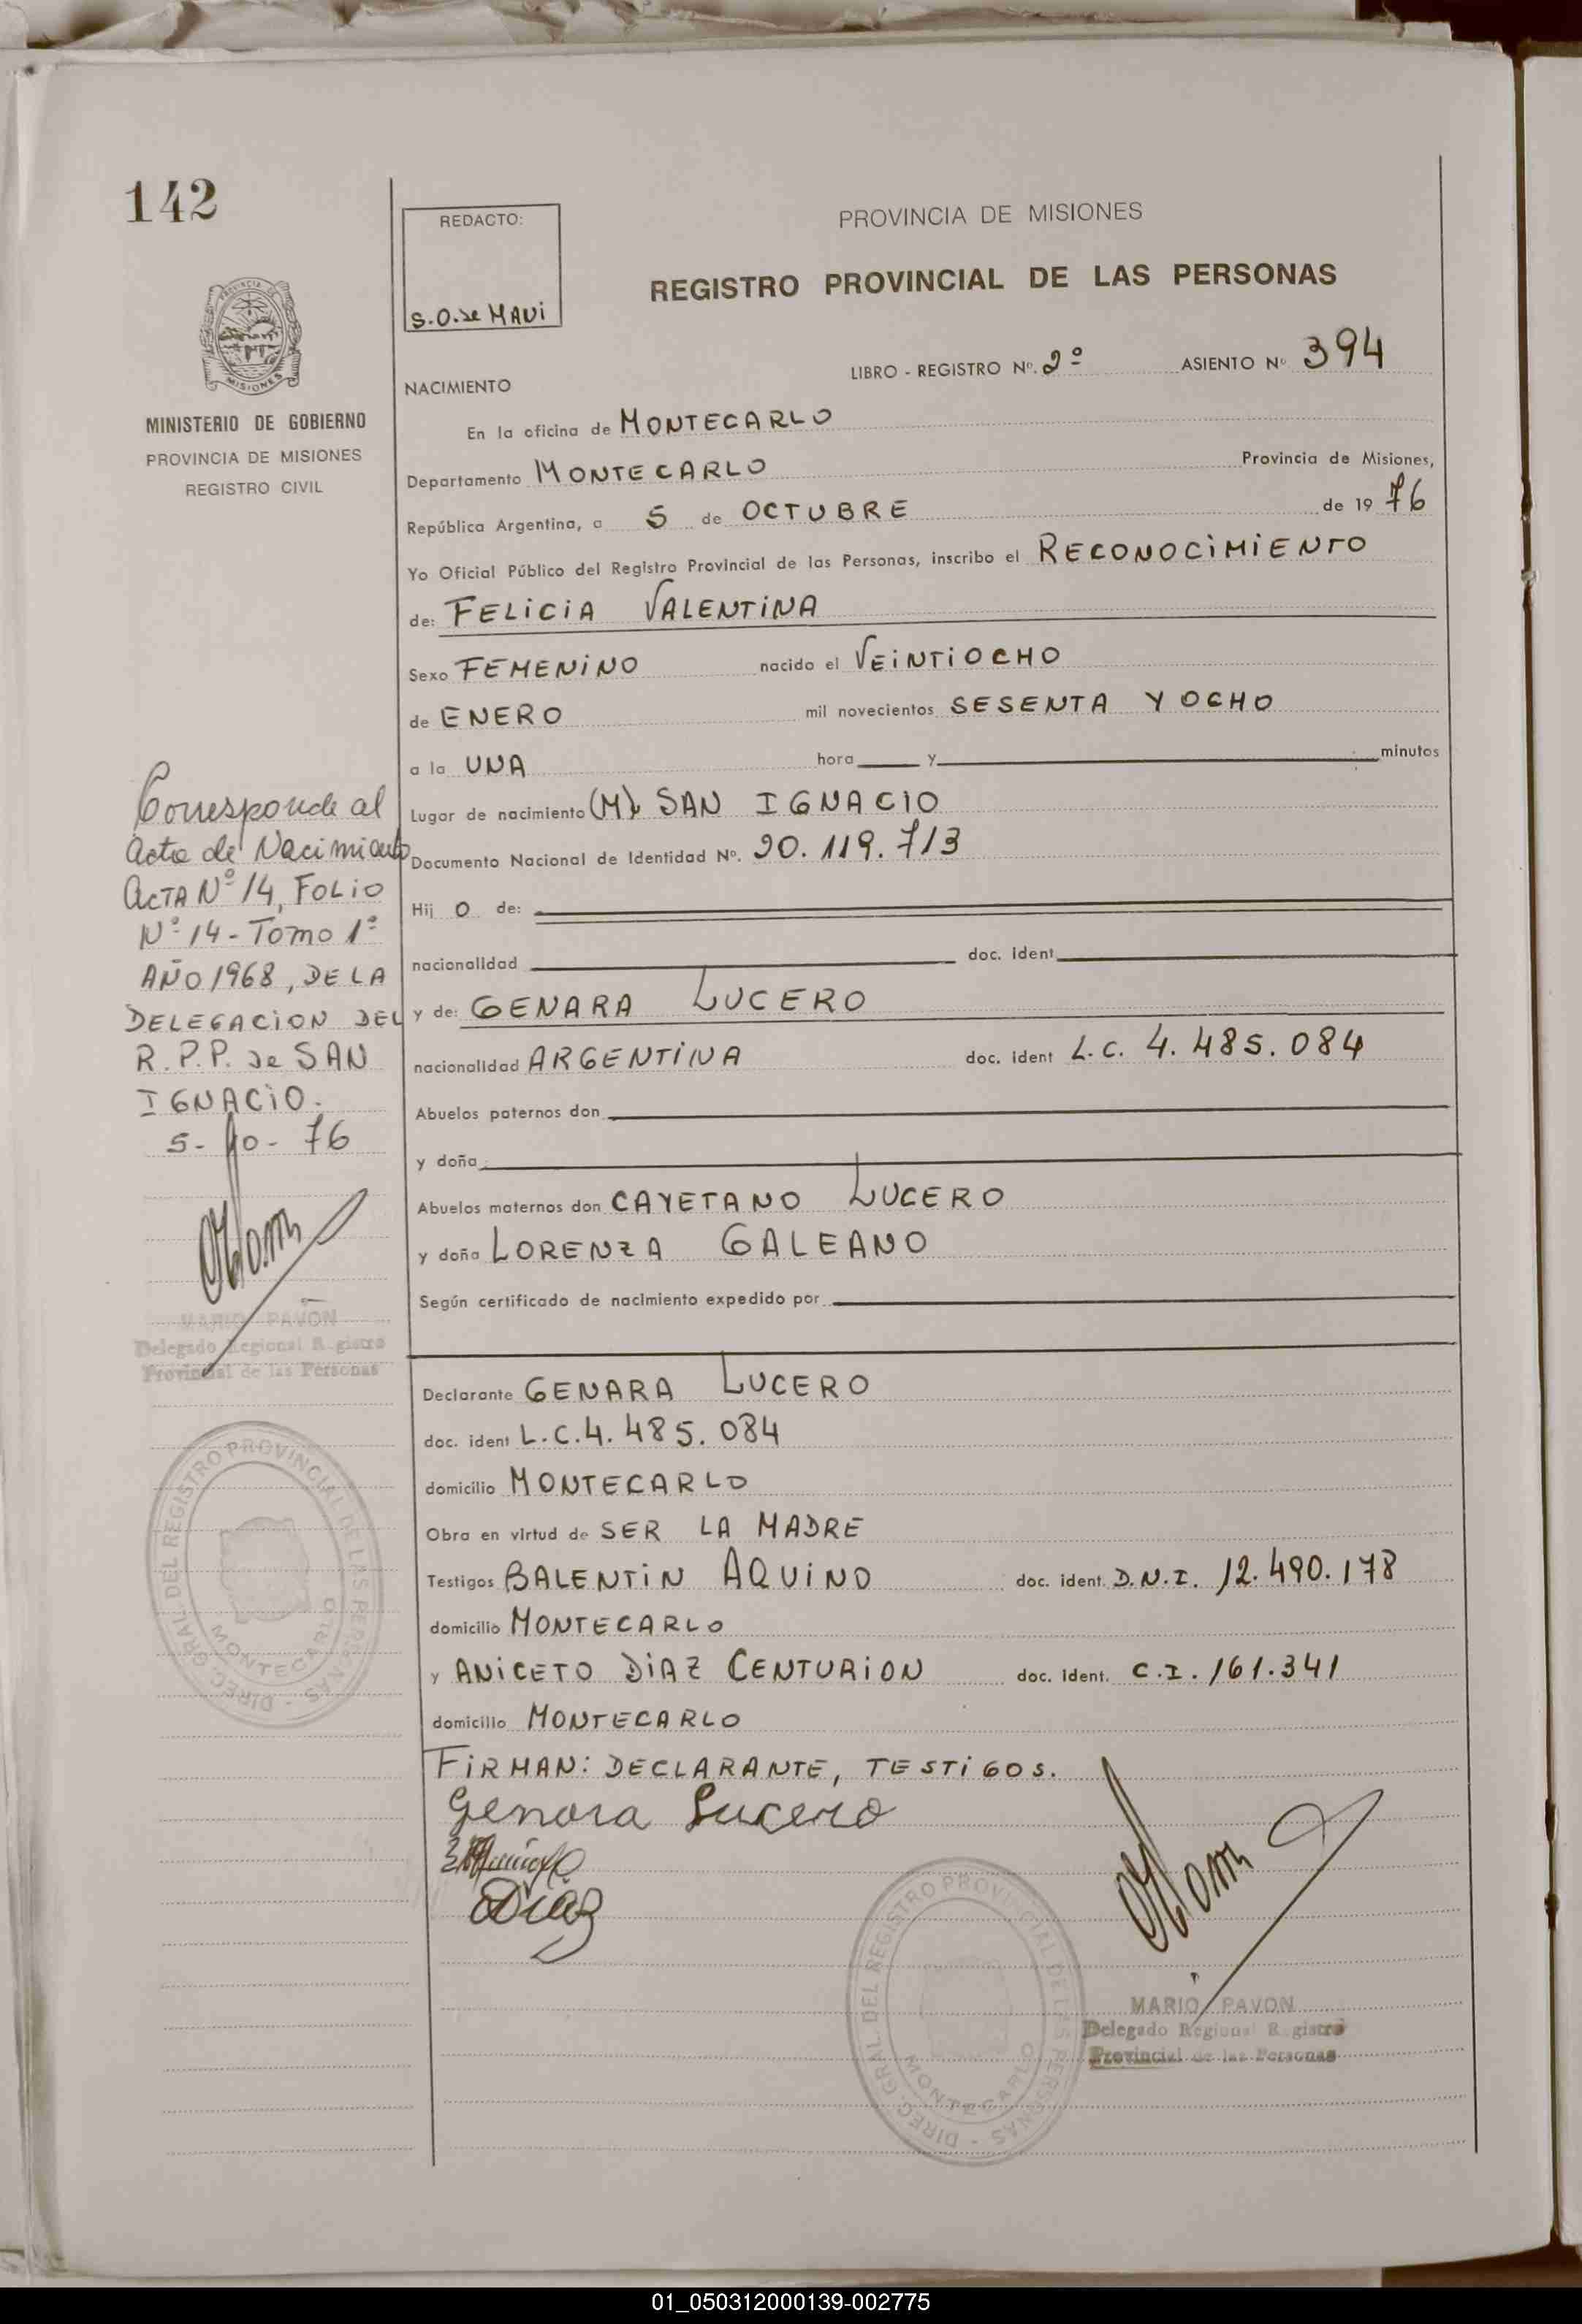 142
REDACTO:
S.O. de MAUI
PROVINCIA DE MISIONES
REGISTRO PROVINCIAL DE LAS PERSONAS
LIBRO - REGISTRO Nº. 2º ASIENTO Nº 394
MISIONES
MINISTERIO DE GOBIERNO
PROVINCIA DE MISIONES
REGISTRO CIVIL
NACIMIENTO
En la oficina de MONTECARLO
Departamento MONTECARLO Provincia de Misiones,
República Argentina, a 5 de OCTUBRE de 1976
Yo Oficial Público del Registro Provincial de las Personas, inscribo el RECONOCIMIENTO
de: FELICIA VALENTINA
Sexo FEMENINO nacido el VEINTIOCHO
de ENERO mil novecientos SESENTA Y OCHO
a la UNA hora y minutos
Lugar de nacimiento (M) SAN IGNACIO
Documento Nacional de Identidad Nº. 20.119.713
Hij O de:
nacionalidad doc. ident
y de: GENARA LUCERO
nacionalidad ARGENTINA doc. ident L.C. 4.485.084
Abuelos paternos don
y doña
Abuelos maternos don CAYETANO LUCERO
y doña LORENZA GALEANO
Según certificado de nacimiento expedido por
Declarante GENARA LUCERO
doc. ident L.C. 4.485.084
domicilio MONTECARLO
Obra en virtud de SER LA MADRE
Testigos BALENTIN AQUINO doc. ident. D.N.I. 12.490.178
domicilio MONTECARLO
y ANICETO DIAZ CENTURION doc. ident. C.I. 161.341
domicilio MONTECARLO
FIRMAN: DECLARANTE, TESTIGOS.
Genara Lucero
Diaz
MARIO PAVON
Delegado Regional Registro
Provincial de las Personas
DIREC. GRAL. DEL REGISTRO PROVINCIAL DE LAS PERSONAS -
MONTECARLO
Corresponde al
Acta de Nacimiento
ACTA Nº 14, FOLIO
Nº 14 - Tomo 1º
AÑO 1968, DE LA
DELEGACION DEL
R.P.P. de SAN
IGNACIO.
5-10-76
MARIO PAVON
Delegado Regional Registro
Provincial de las Personas
DIREC. GRAL. DEL REGISTRO PROVINCIAL DE LAS PERSONAS -
MONTECARLO
01_050312000139-002775